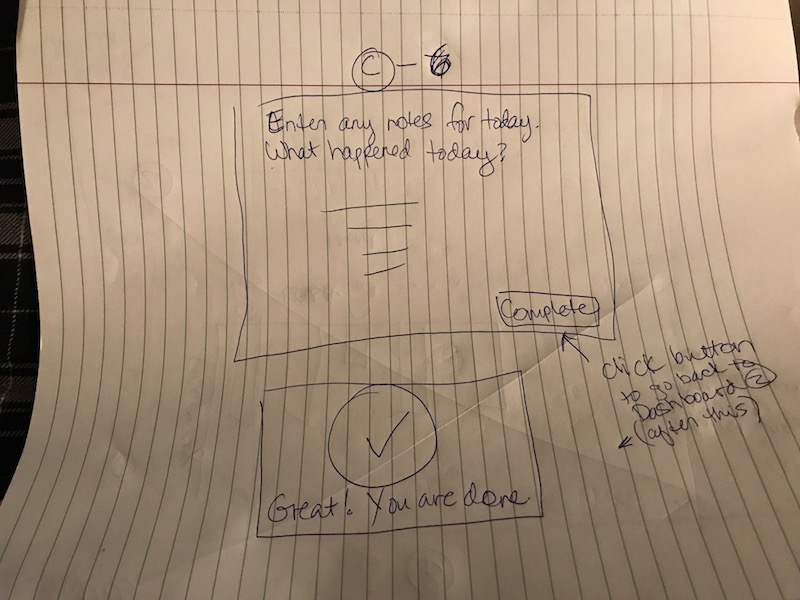 C - 6
Enter any notes for today.
What happened today?
Complete
click button
to go back to
Dashboard 2
(after this)
Great! You are done.